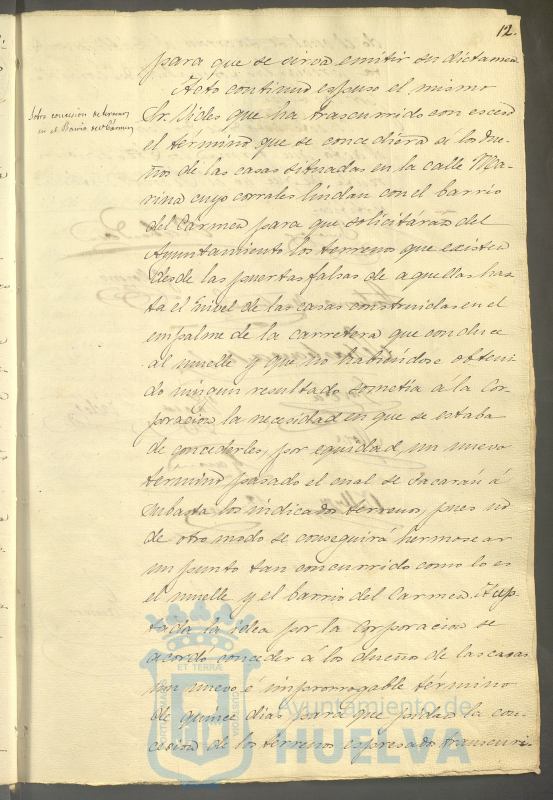 12.
para que se sirva emitir su dictamen
Acto continuo espuso el mismo
Sobre concesion de terrenos
en el Barrio del Carmen
Sr. Vides que ha trascurrido con esceso
el término que se concediera á los due-
ños de las casas situadas en la calle Ma-
rina cuyos corrales lindan con el barrio
del Carmen para que solicitáran del
Ayuntamiento los terrenos que existen
desde las puertas falsas de aquellas has-
ta el nivel de las casas construidas en el
empalme de la carretera que conduce
al muelle y que no habiéndose obteni-
do ningun resultado sometia a la Cor-
poracion la necesidad en que se estaba
de concederles, por equidad, un nuevo
termino pasado el cual se sacarán á
subasta los indicados terrenos, pues no
de otro modo se conseguirá hermosear
un punto tan concurrido como lo es
el muelle y el barrio del Carmen. Acep-
tada la idea por la Corporacion se
acordó conceder á los dueños de las casas
un nuevo é improrrogable término
de quince dias para que pidan la con-
cesion de los terrenos espresados trascurri-
PORTUS MARIS ET TERRÆ CUSTODIA
Ayuntamiento de
HUELVA